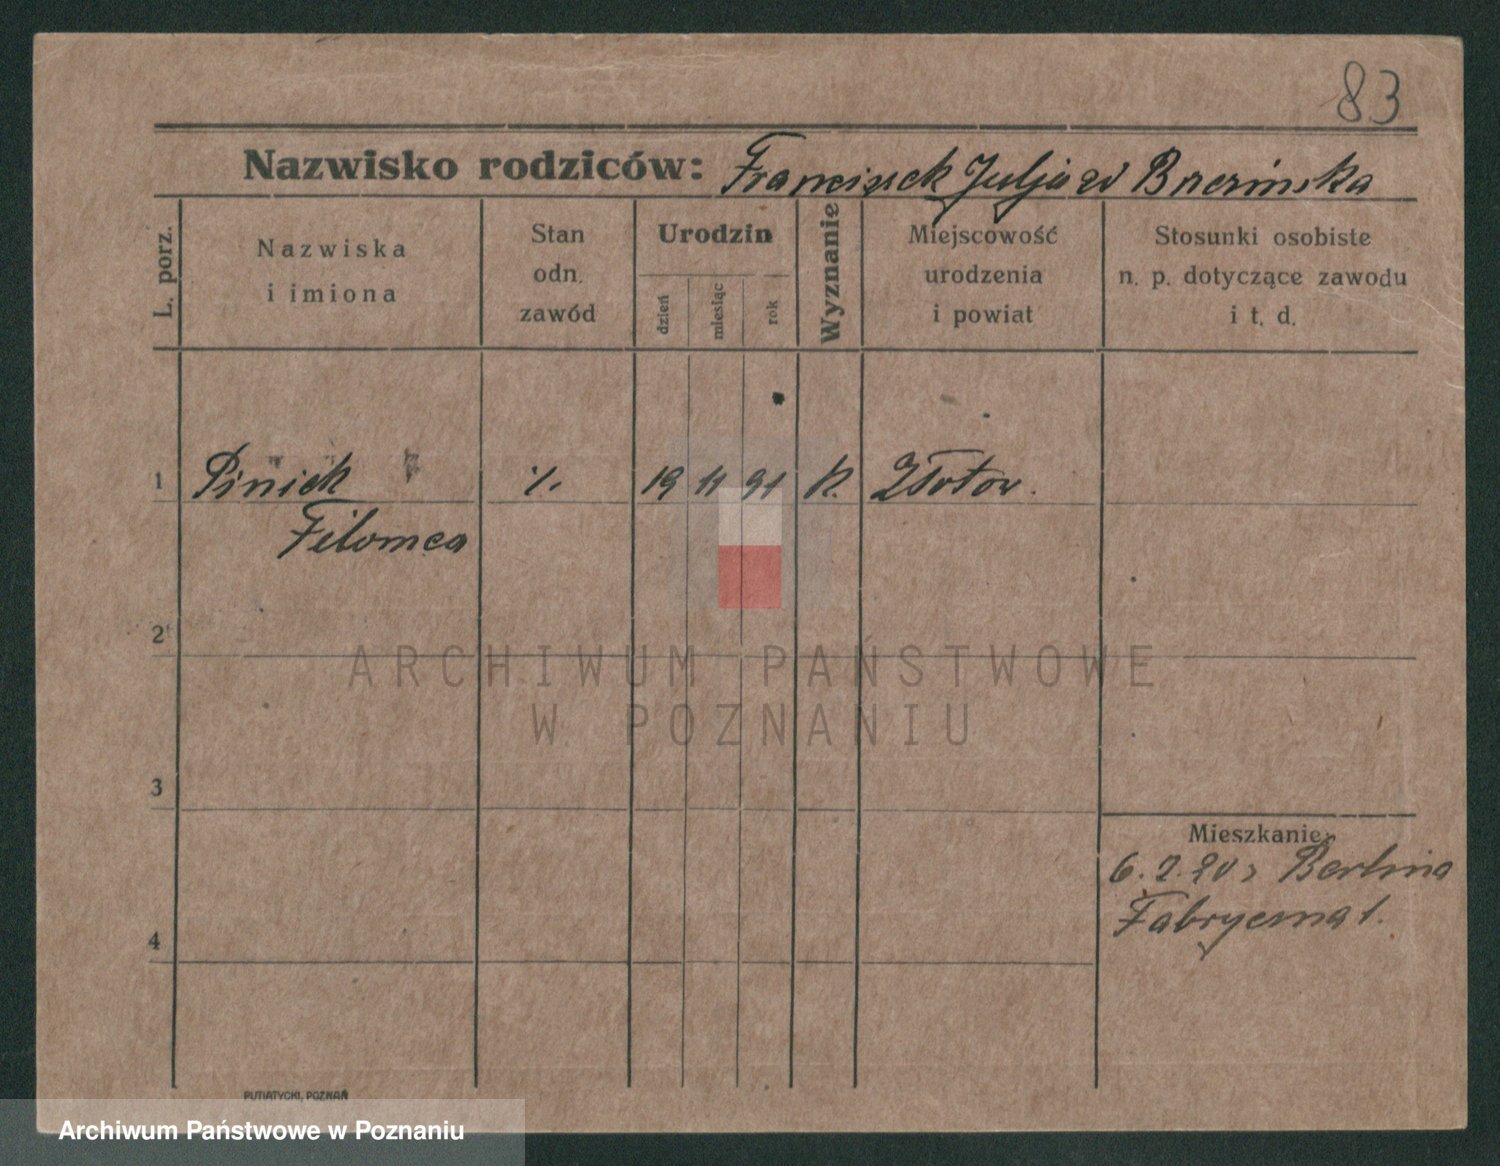 83
Nazwisko rodziców: Franciszek Julja zd Brzezińska
L. porz.
Nazwiska i imiona
Stan odn. zawód
Urodzin
dzień
miesiąc
rok
Wyznanie
Miejscowość urodzenia i powiat
Stosunki osobiste n. p. dotyczące zawodu i t. d.
1 Piniek ·/. 19 11 91 k. Złotow.
Filomea
2
ARCHIWUM PAŃSTWOWE
W POZNANIU
3
Mieszkanie
6.2.20 z Berlina
Fabryczna 1.
4
PUTIATYCKI, POZNAŃ
Archiwum Państwowe w Poznaniu